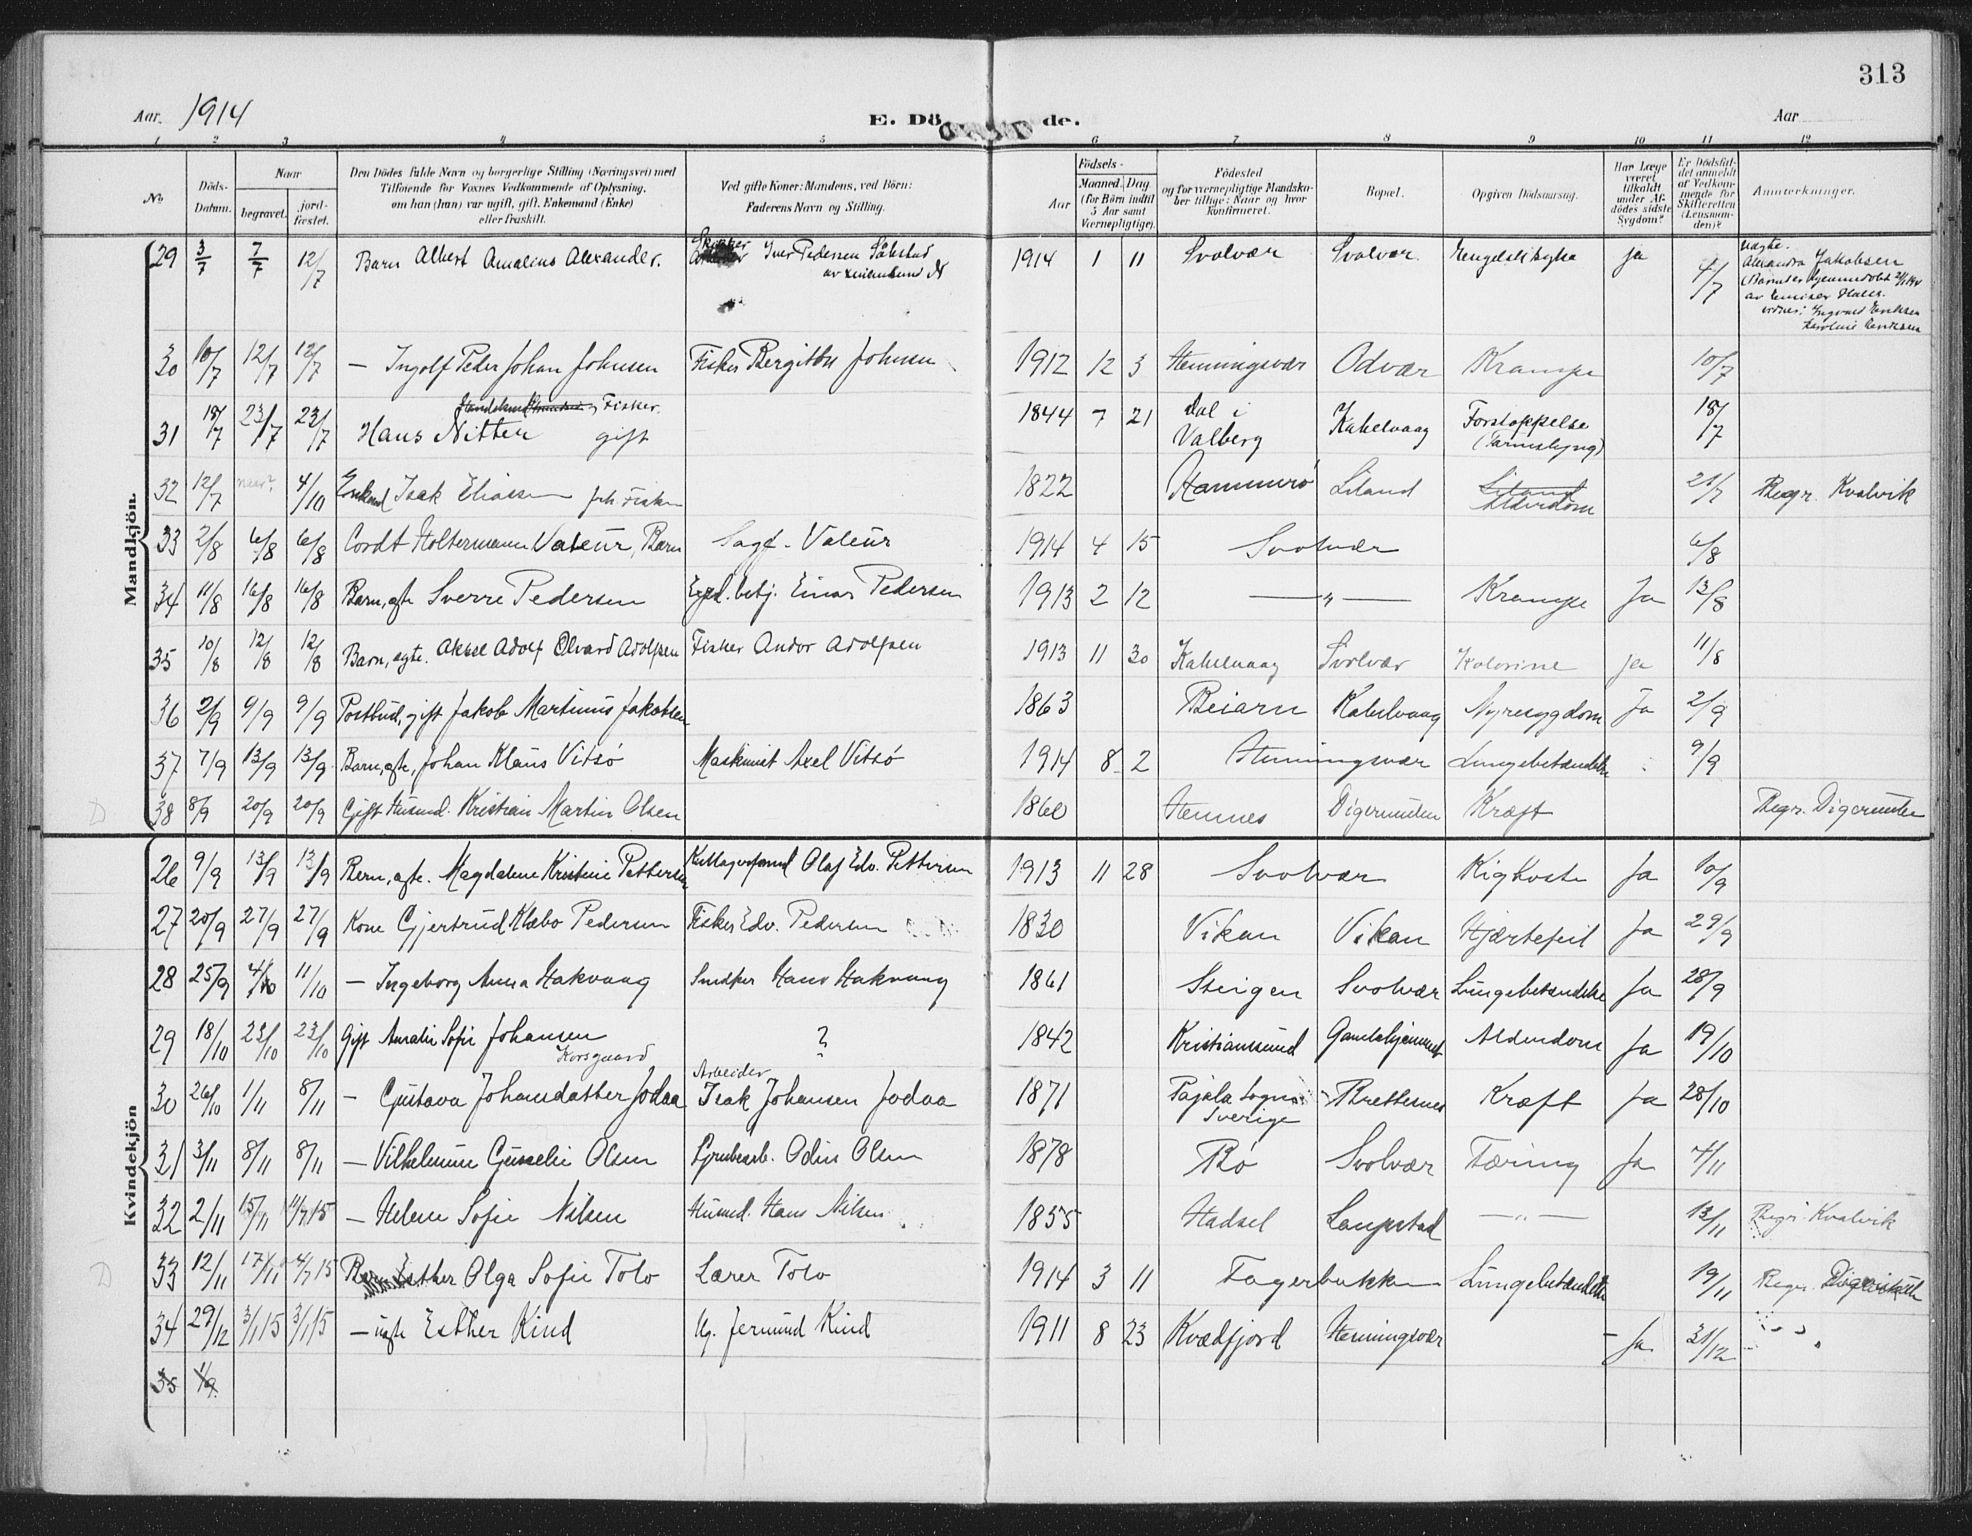 313
Aar 1914
E. Dö de.
Aar
1 2 3 4 5 6 7 8 9 10 11 12
No
Döds-Datum.
Naar
begravet.
jord-fæstet.
Den Dödes fulde Navn og borgerlige Stilling (Næringsvei) med
Tilföiende for Voxnes Vedkommende af Oplysning,
om han (hun) var ugift, gift, Enkemand (Enke)
eller fraskilt.
Ved gifte Koner: Mandens, ved Börn:
Faderens Navn og Stilling.
Födsels-
Aar
Maaned. Dag
(for Börn indtil
5 Aar samt
Værnepligtige).
Födested
og for værnepligtige Mandska-
ber tillige: Naar og hvor
konfirmeret.
Bopæl.
Opgiven Dödsaarsag.
Har Læge
været
tilkaldt
under Af-
dödes sidste
Sygdom?
Er Dödsfal-
det anmeldt
af Vedkom-
mende for
Skifteretten
(Lensman-
den)?
Anmærkninger.
Mandkjön.
29 3/7 7/7 12/7 Barn Albert Amalius Alexander. Iver Pedersen 1914 1 11 Svolvær Svolvær. Engelsk syke ja 4/7 Uægte.
Alexandra Jakobsen
30 10/7 12/7 12/7 — Ingolf Peder Johan Johnsen Fisker Bergiton Johnsen 1912 12 3 Henningsvær Odvær Krampe 10/7
Fisker.
31 18/7 23/7 23/7 Hans Nitter gift 1844 7 21 Dal i Valberg Kabelvaag Forstoppelse 18/7
32 12/7 naar? 4/10 Enkemd Isak Eliassen fhv Fisker 1822 Hammerø Liland Alderdom 21/7 Begr. Kvalvik
33 2/8 6/8 6/8 Cordt Holtermann Valeur, Barn Sagf. Valeur 1914 4 15 Svolvær 6/8
34 11/8 16/8 16/8 Barn, ægte Sverre Pedersen Exp. betj. Einar Pedersen 1913 2 12 — „ — Krampe Ja 13/8
35 10/8 12/8 12/8 Barn, ægte. Aksel Adolf Edvard Adolfsen Fisker Andor Adolfsen 1913 11 30 Kabelvaag Svolvær Kolerine ja 11/8
36 2/9 9/9 9/9 Postbud, gift Jakob Martinus Jakobsen 1863 Beiarn Kabelvaag Nyresygdom Ja 2/9
37 7/9 13/9 13/9 Barn, ægte, Johan Klaus Vitsø Maskinist Axel Vitsø 1914 8 2 Henningsvær Lungebetændelse 9/9
D 38 8/9 20/9 20/9 Gift Husmd. Kristian Martin Olsen 1860 Hemnes Digermulen Kræft Begr. Digermulen
Kvindekjön
26 9/9 13/9 13/9 Barn, ægte. Magdalene Kristine Pettersen Olaf Edv. Pettersen 1913 11 28 Svolvær Kighoste Ja 10/9
27 20/9 27/9 27/9 Kone Gjertrud Klæbo Pedersen Fisker Edv. Pedersen 1830 Vikan Vikan Hjærtefeil Ja 29/9
28 25/9 4/10 11/10 — Ingeborg Anna Hakvaag Snedker Hans Hakvaag 1861 Steigen Svolvær Lungebetændelse Ja 28/9
29 18/10 23/10 23/10 Gift Amalie Sofie Johansen Korsgaard ? 1842 Kristiansund Gamlehjemmet Alderdom Ja 19/10
30 26/10 1/11 8/11 — Gustava Johansdatter Jodaa Arbeider Isak Johansen Jodaa 1871 Pajala Sogn Sverige Brettesnes Kræft Ja 28/10
31 3/11 8/11 8/11 — Vilhelmine Gunelie Olsen Grubearb. Odin Olsen 1878 Bø Svolvær Tæring Ja 4/11
32 2/11 15/11 11/7 15 — Helene Sofie Nilsen Husmd. Hans Nilsen 1855 Hadsel Laupstad — „ — 13/11 Begr. Kvalvik
D 33 12/11 17/11 4/7 15 Barn Esther Olga Sofie Tolo Lærer Tolo 1914 3 11 Fagerbakken Lungebetændelse 19/11 Begr.
34 29/12 3/1 15 3/1 15 — uægte Esther Kind Ug. Jermund Kind 1911 8 23 Kvædfjord Henningsvær — Ja 31/12
35